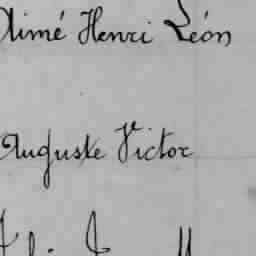 Aimé Henri Léon
Auguste Victor